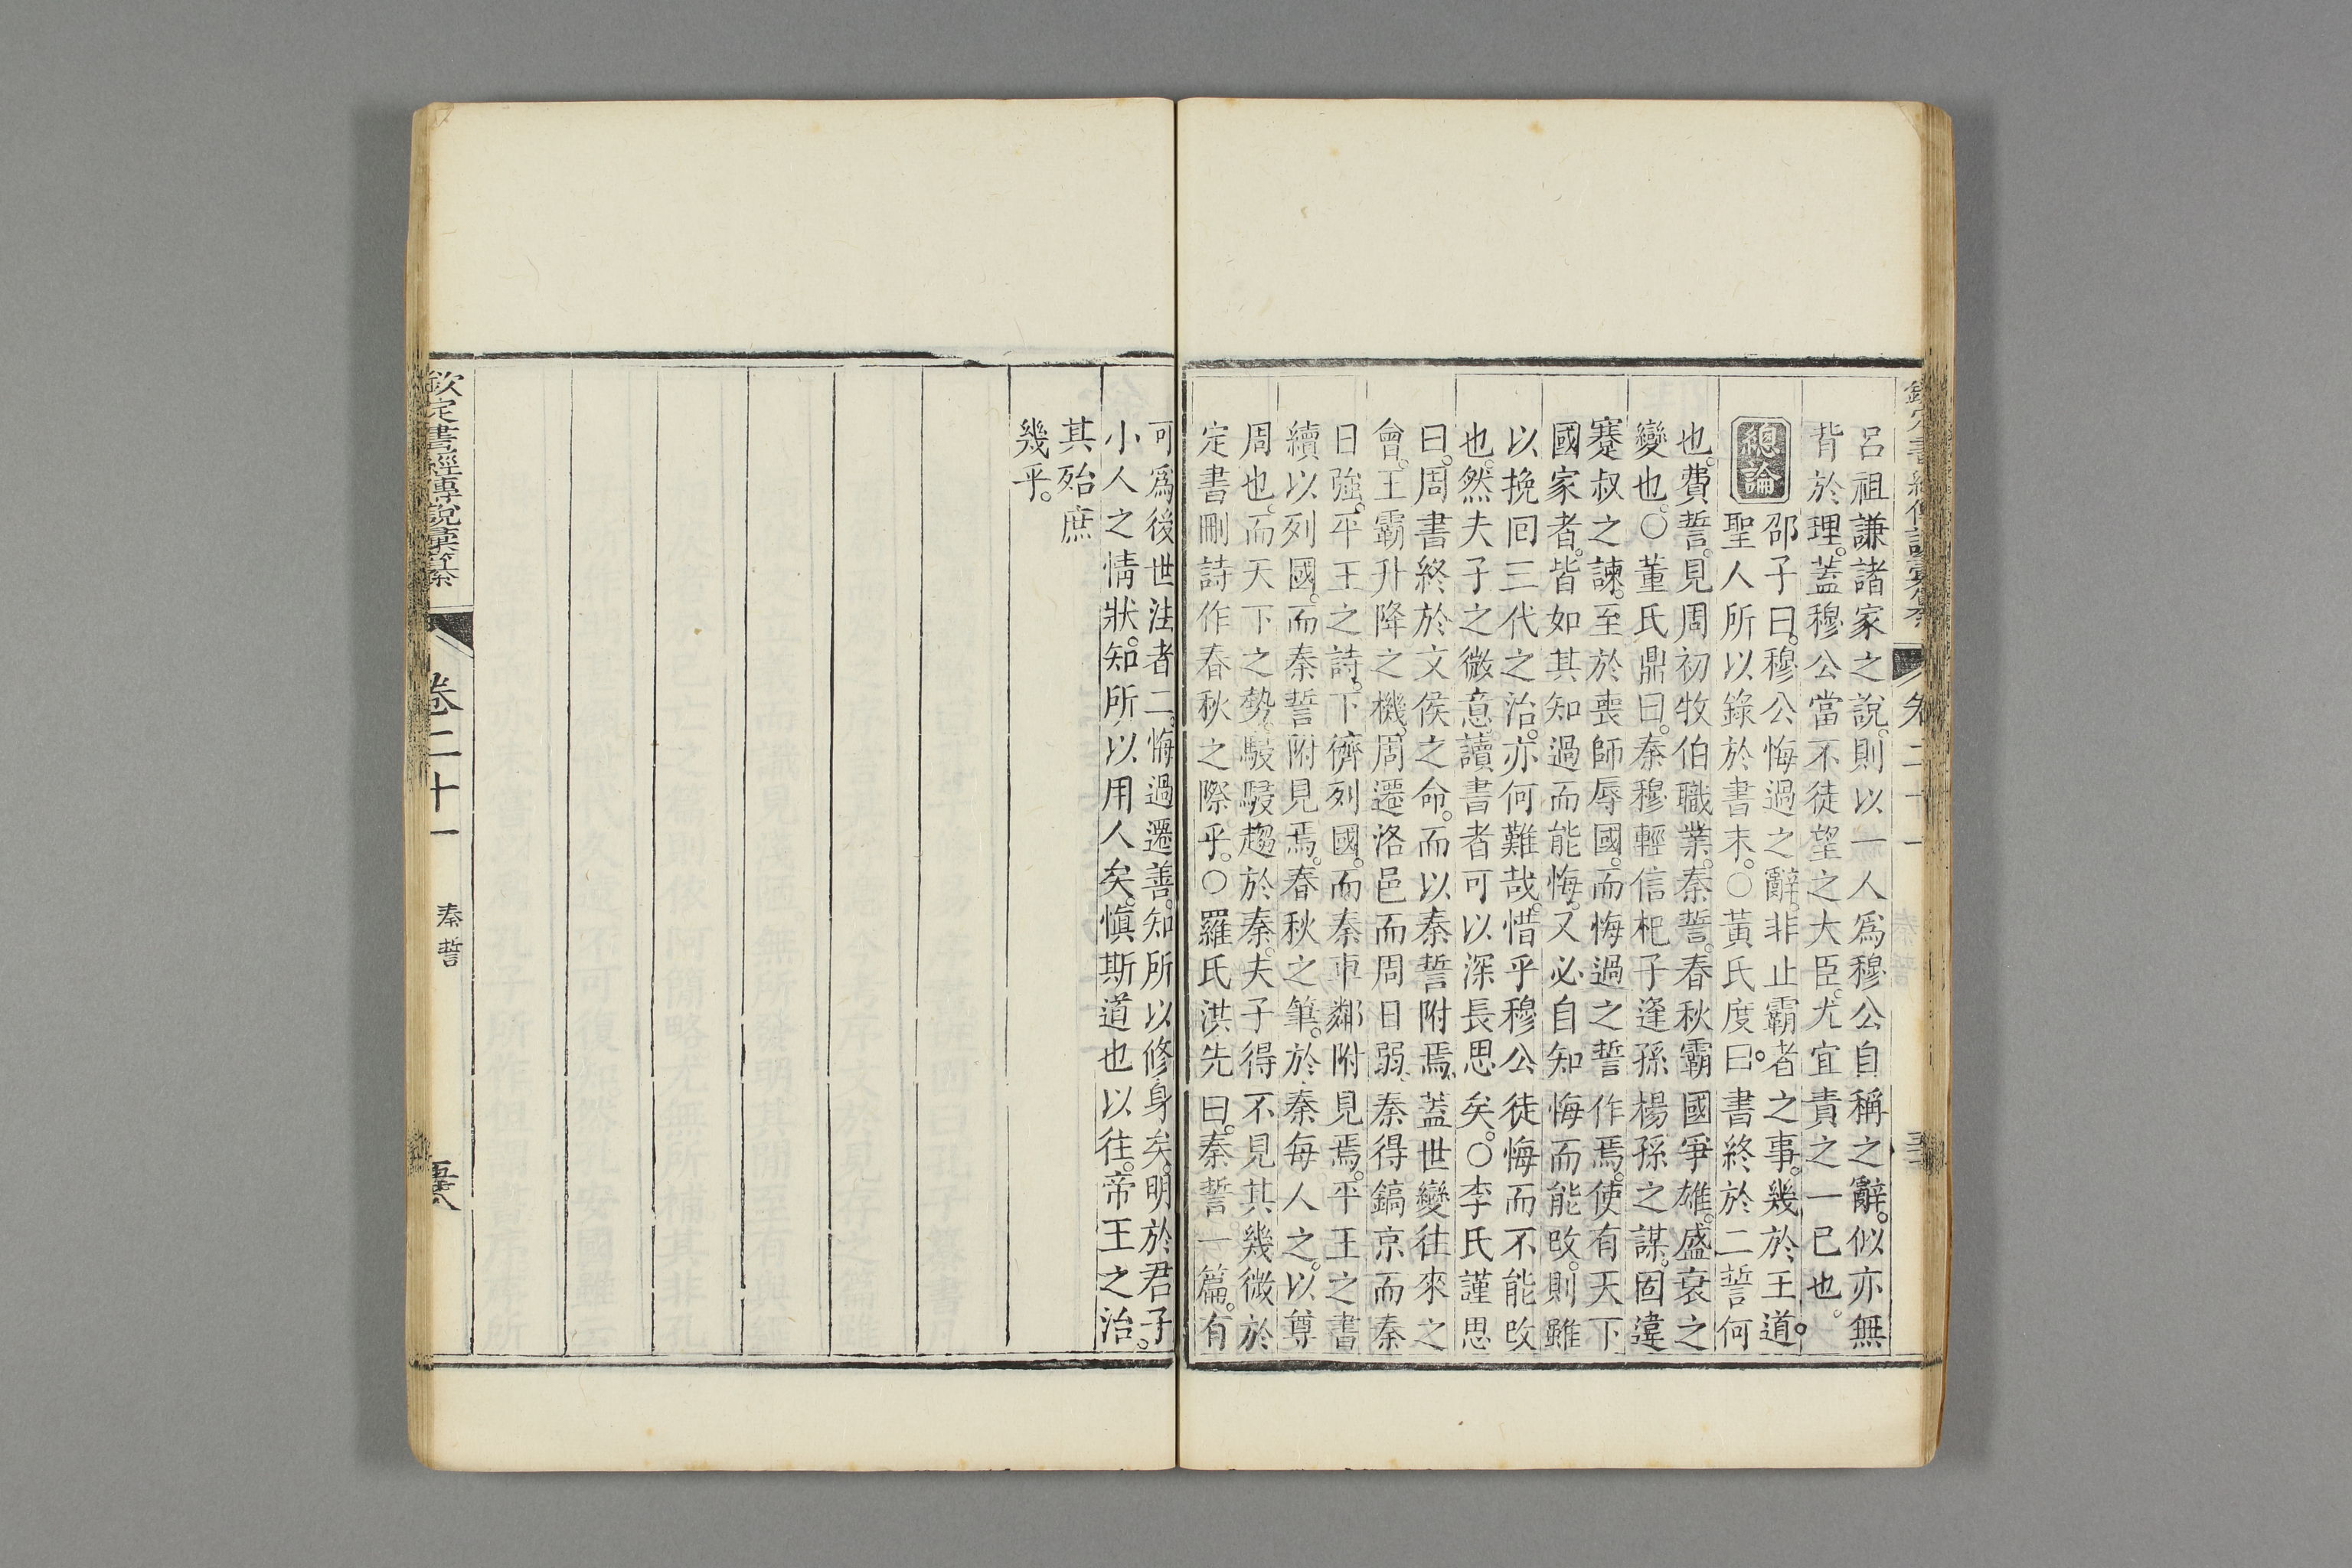 呂祖謙諸家之說。則以一人爲穆公自稱之辭。似亦無
背於理。蓋穆公當不徒望之大臣。尤宜責之一已也。
總論
邵子曰。穆公悔過之辭。非止霸者之事。幾於王道。
聖人所以錄於書末。○黃氏度曰。書終於二誓何
也。費誓。見周初牧伯職業。秦誓。春秋霸國爭雄。盛衰之
變也。○董氏鼎曰。秦穆輕信杞子逢孫楊孫之謀。固違
蹇叔之諫。至於喪師辱國。而悔過之誓作焉。使有天下
國家者。皆如其知過而能悔。又必自知悔而能改。則雖
以挽回三代之治。亦何難哉。惜乎穆公徒悔而不能改
也。然夫子之微意。讀書者可以深長思矣。○李氏謹思
曰。周書終於文侯之命。而以秦誓附焉。蓋世變往來之
會。王霸升降之機。周遷洛邑而周日弱。秦得鎬京而秦
日強。平王之詩。下儕列國。而秦車鄰附見焉。平王之書
續以列國。而秦誓附見焉。春秋之筆。於秦每人之。以尊
周也。而天下之勢。駸駸趨於秦。夫子得不見其幾微於
定書刪詩作春秋之際乎。○羅氏洪先曰。秦誓一篇。有
可爲後世法者二。悔過遷善。知所以修身矣。明於君子。
小人之情狀。知所以用人矣。愼斯道也以往。帝王之治。
其殆庶
幾乎。
欽定書經傳說彙纂
卷二十一
秦誓